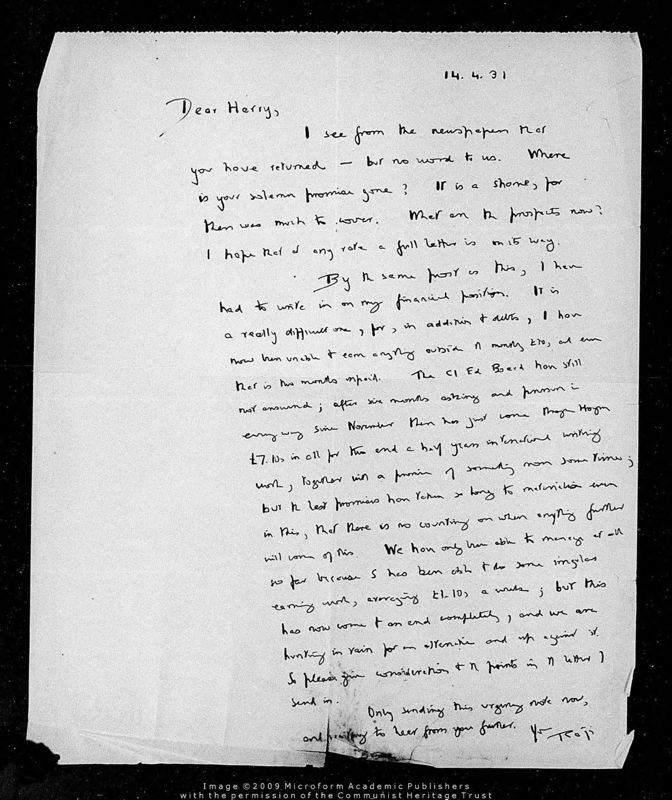 14.4.31
Dear Harry,
I see from the newspapers that
you have returned — but no word to us. Where
is your solemn promise gone? It is a shame, for
there was much to cover. What are the prospects now?
I hope that at any rate a full letter is on its way.
By the same post as this, I have
had to write in on my financial position. It is
a really difficult one, for, in addition to debts, I have
now been unable to earn anything outside the monthly £10, and even
that is two months unpaid. The CI Ed Board have still
not answered; after six months asking and pressure in
every way since November there has just come through
£7.10s in all for two and a half years international writing
work, together with a promise of something more some time;
but the last promises have taken so long to materialise even
in this, that there is no counting on when anything further
will come of this. We have only been able to manage at all
so far because S has been able to do some irregular
earning work, averaging £1.10s a week; but this
has now come to an end completely, and we are
hunting in vain for an alternative and up against it.
So please give consideration to the points in the letter I
send in.
Only sending this urgency note now,
and waiting to hear from you further. Yrs
Image ©2009 Microform Academic Publishers
with the permission of the Communist Heritage Trust